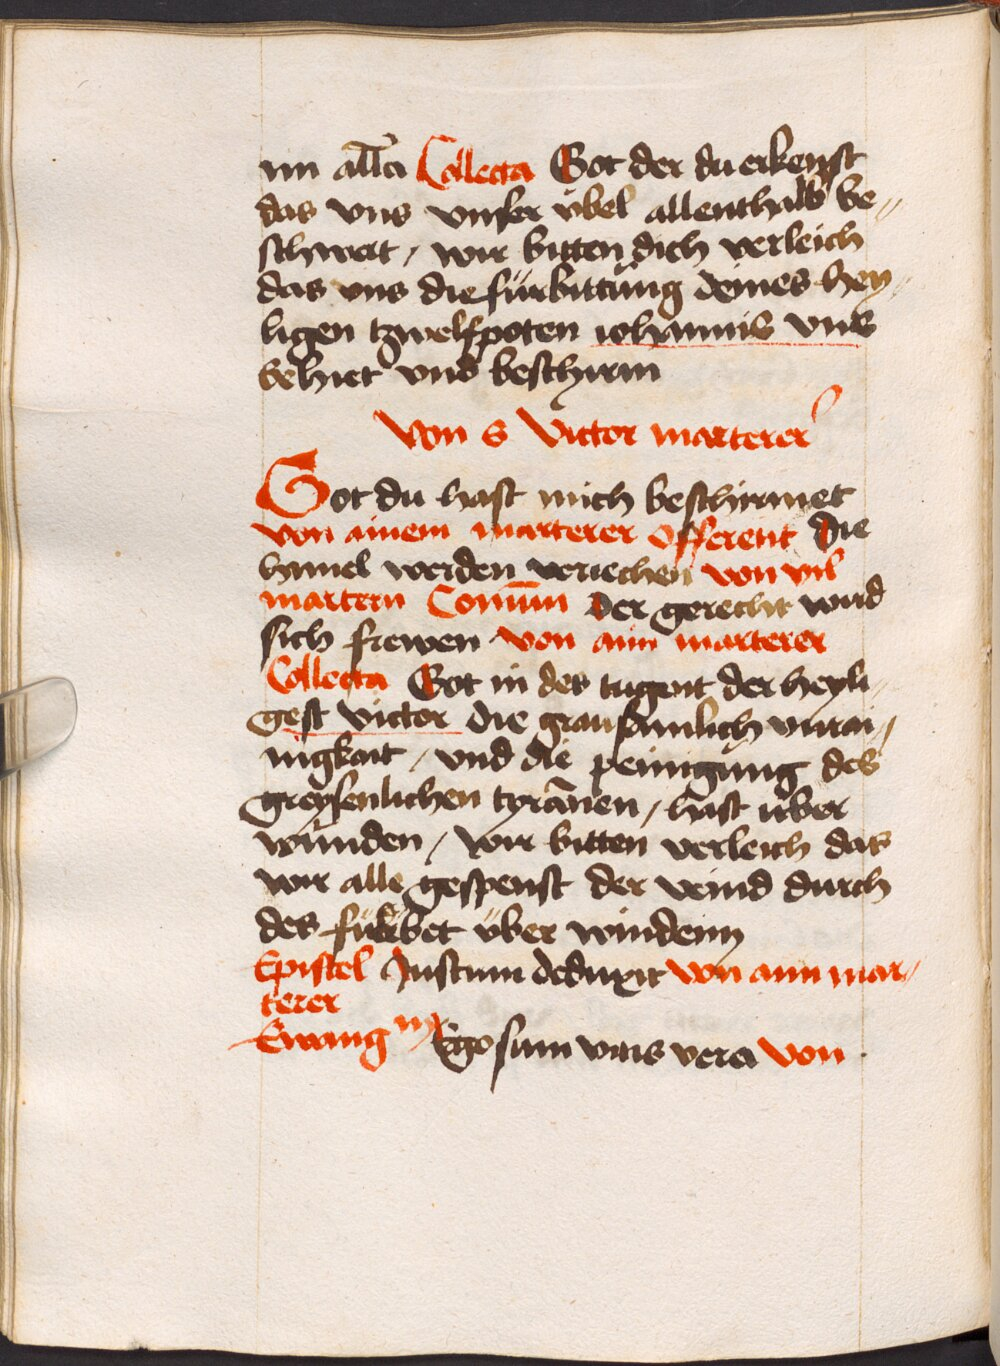 im alla Collecta Got der du erkenst
das vns vnser übel allenthalb be„
schwert / wir bitten dich verleich
das vns die fürbittung deines hey„
ligen tzwelfpoten iohannis vns
behiet vnd beschirm
Von S Victor marterer
Got du hast mich beschirmet
von ainem marterer Offerent die
himel werden veriechen von vil
martern Comūm Der gerecht wirt
sich frewen von aim marterer
Collecta Got in des tugent der heyli„
gest victor die grausamlich vnrai„
nigkait / vnd die peinigung des
greysenlichen tyrānen / hast über
wunden / Wir bitten verleich das
wir alle gespenst der veind durch
des fürbet über windenn
Epistel Justum deduxit von aim mar„
terer
Ewangm Ego sum vitis vera von